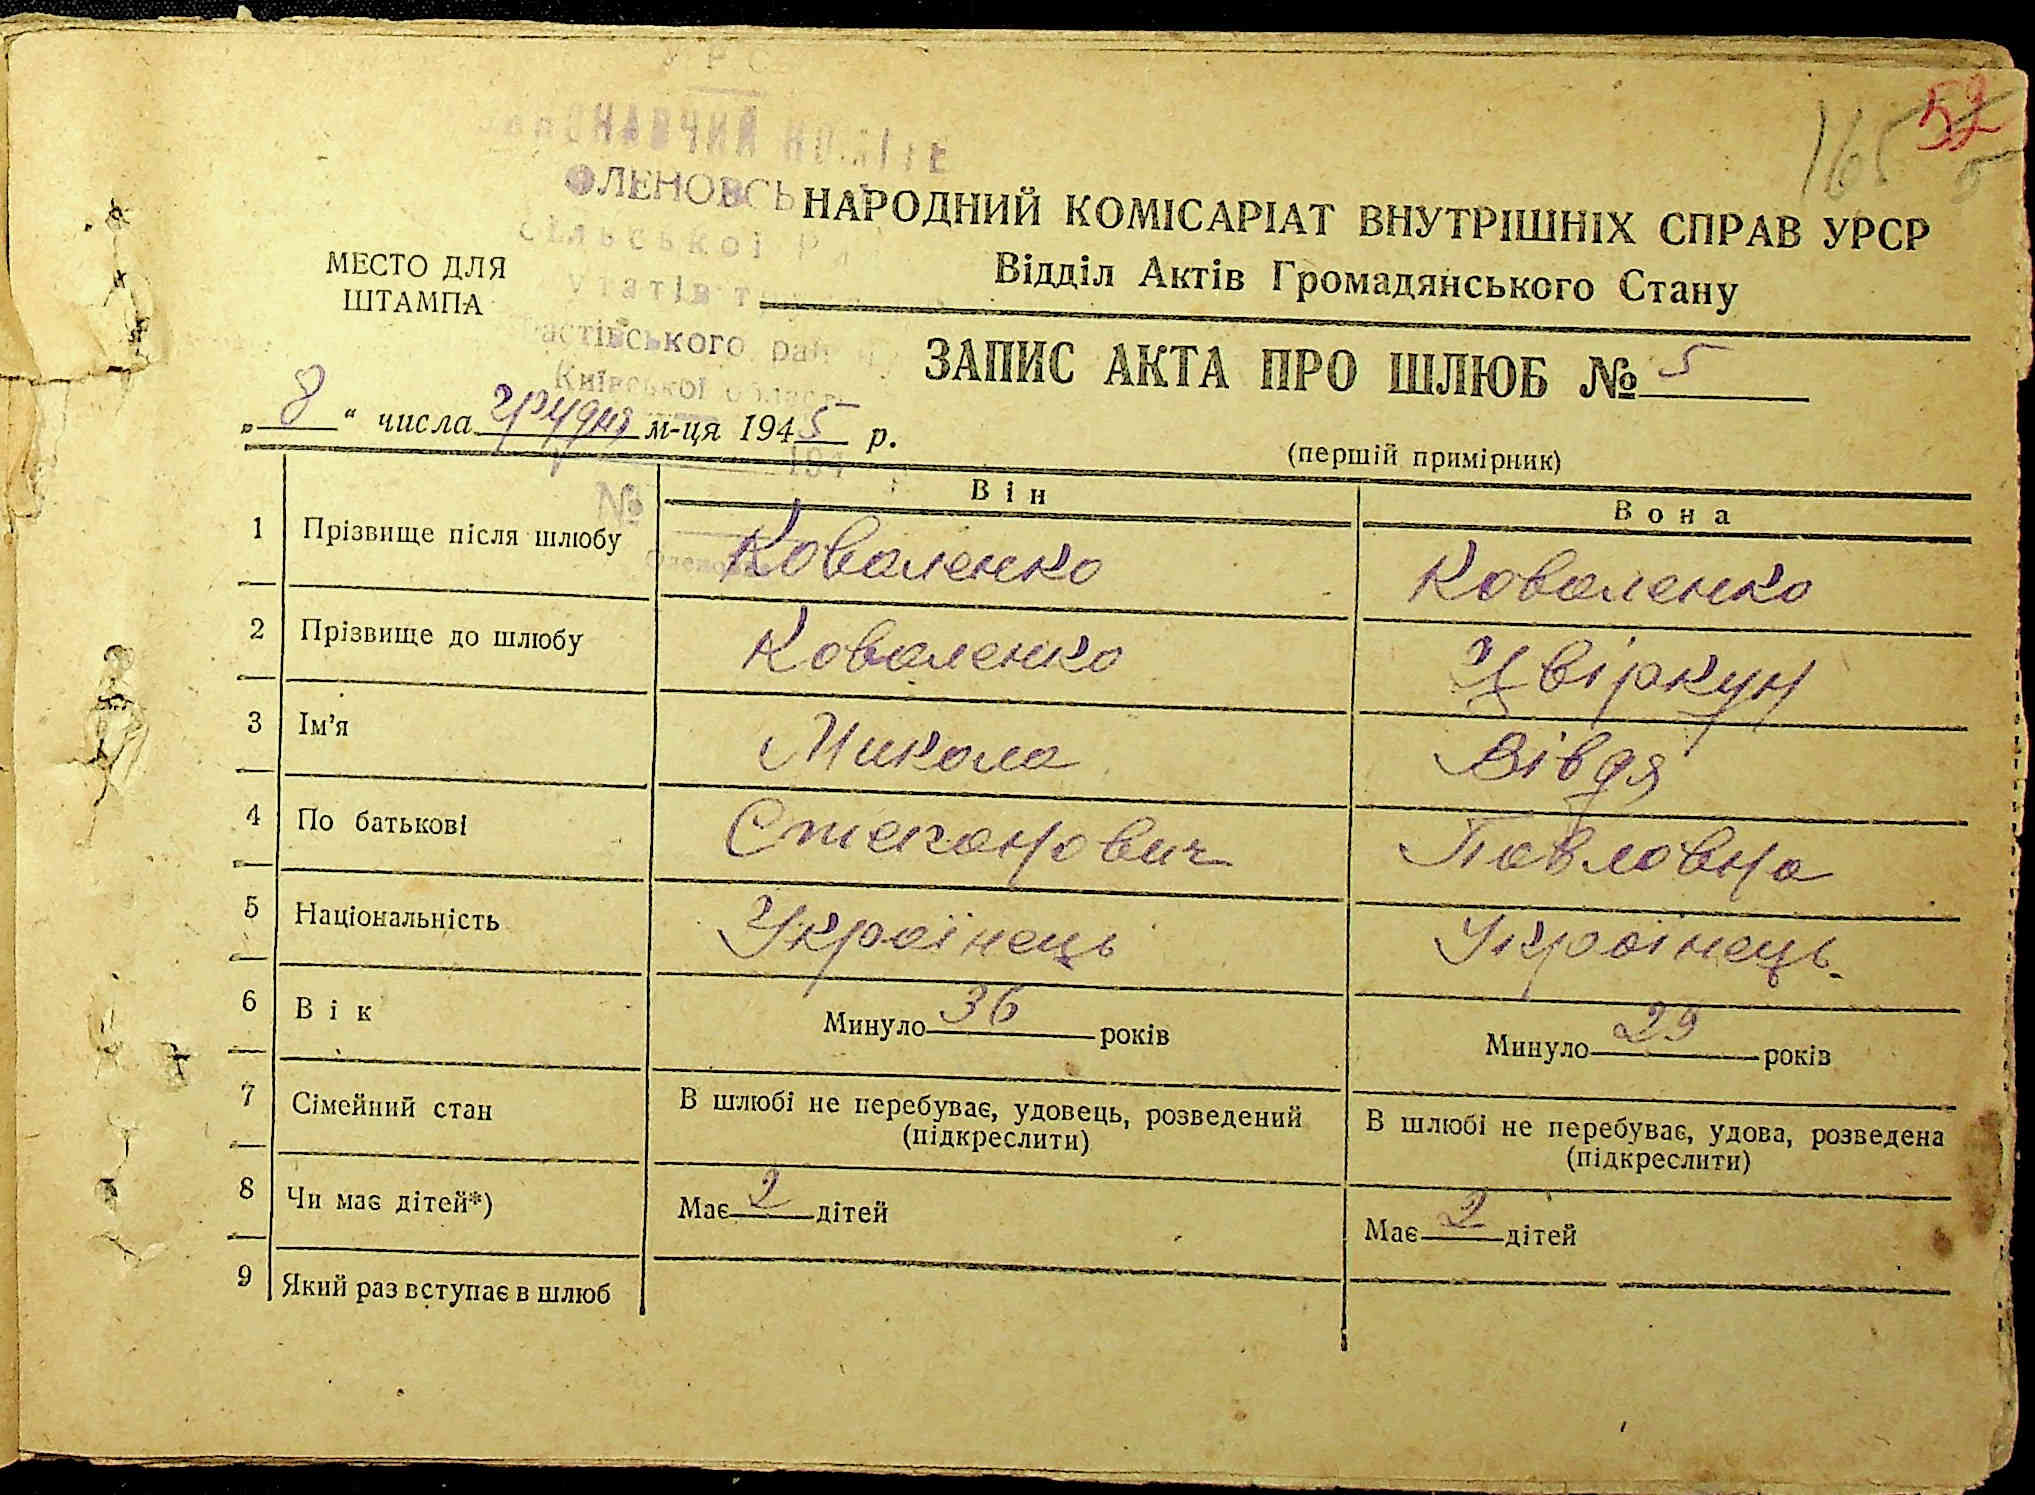 УРС
ОЛЕНОВСЬ
сільської
Фастівського району
Київської
194
№
165
52
НАРОДНИЙ КОМІСАРІАТ ВНУТРІШНІХ СПРАВ УРСР
Відділ Актів Громадянського Стану
МЕСТО ДЛЯ
ШТАМПА
ЗАПИС АКТА ПРО ШЛЮБ № 5
„ 8 “ числа грудня м-ця 1945 р.
(першій примірник)
Він Вона
1 Прізвище після шлюбу Коваленко Коваленко
2 Прізвище до шлюбу Коваленко Цвіркун
3 Ім'я Микола Вівдя
4 По батькові Степанович Павловна
5 Національність Українець Українець
6 Вік Минуло 36 років Минуло 29 років
7 Сімейний стан В шлюбі не перебуває, удовець, розведений В шлюбі не перебуває, удова, розведена
(підкреслити) (підкреслити)
8 Чи має дітей*) Має 2 дітей Має 2 дітей
9 Який раз вступає в шлюб